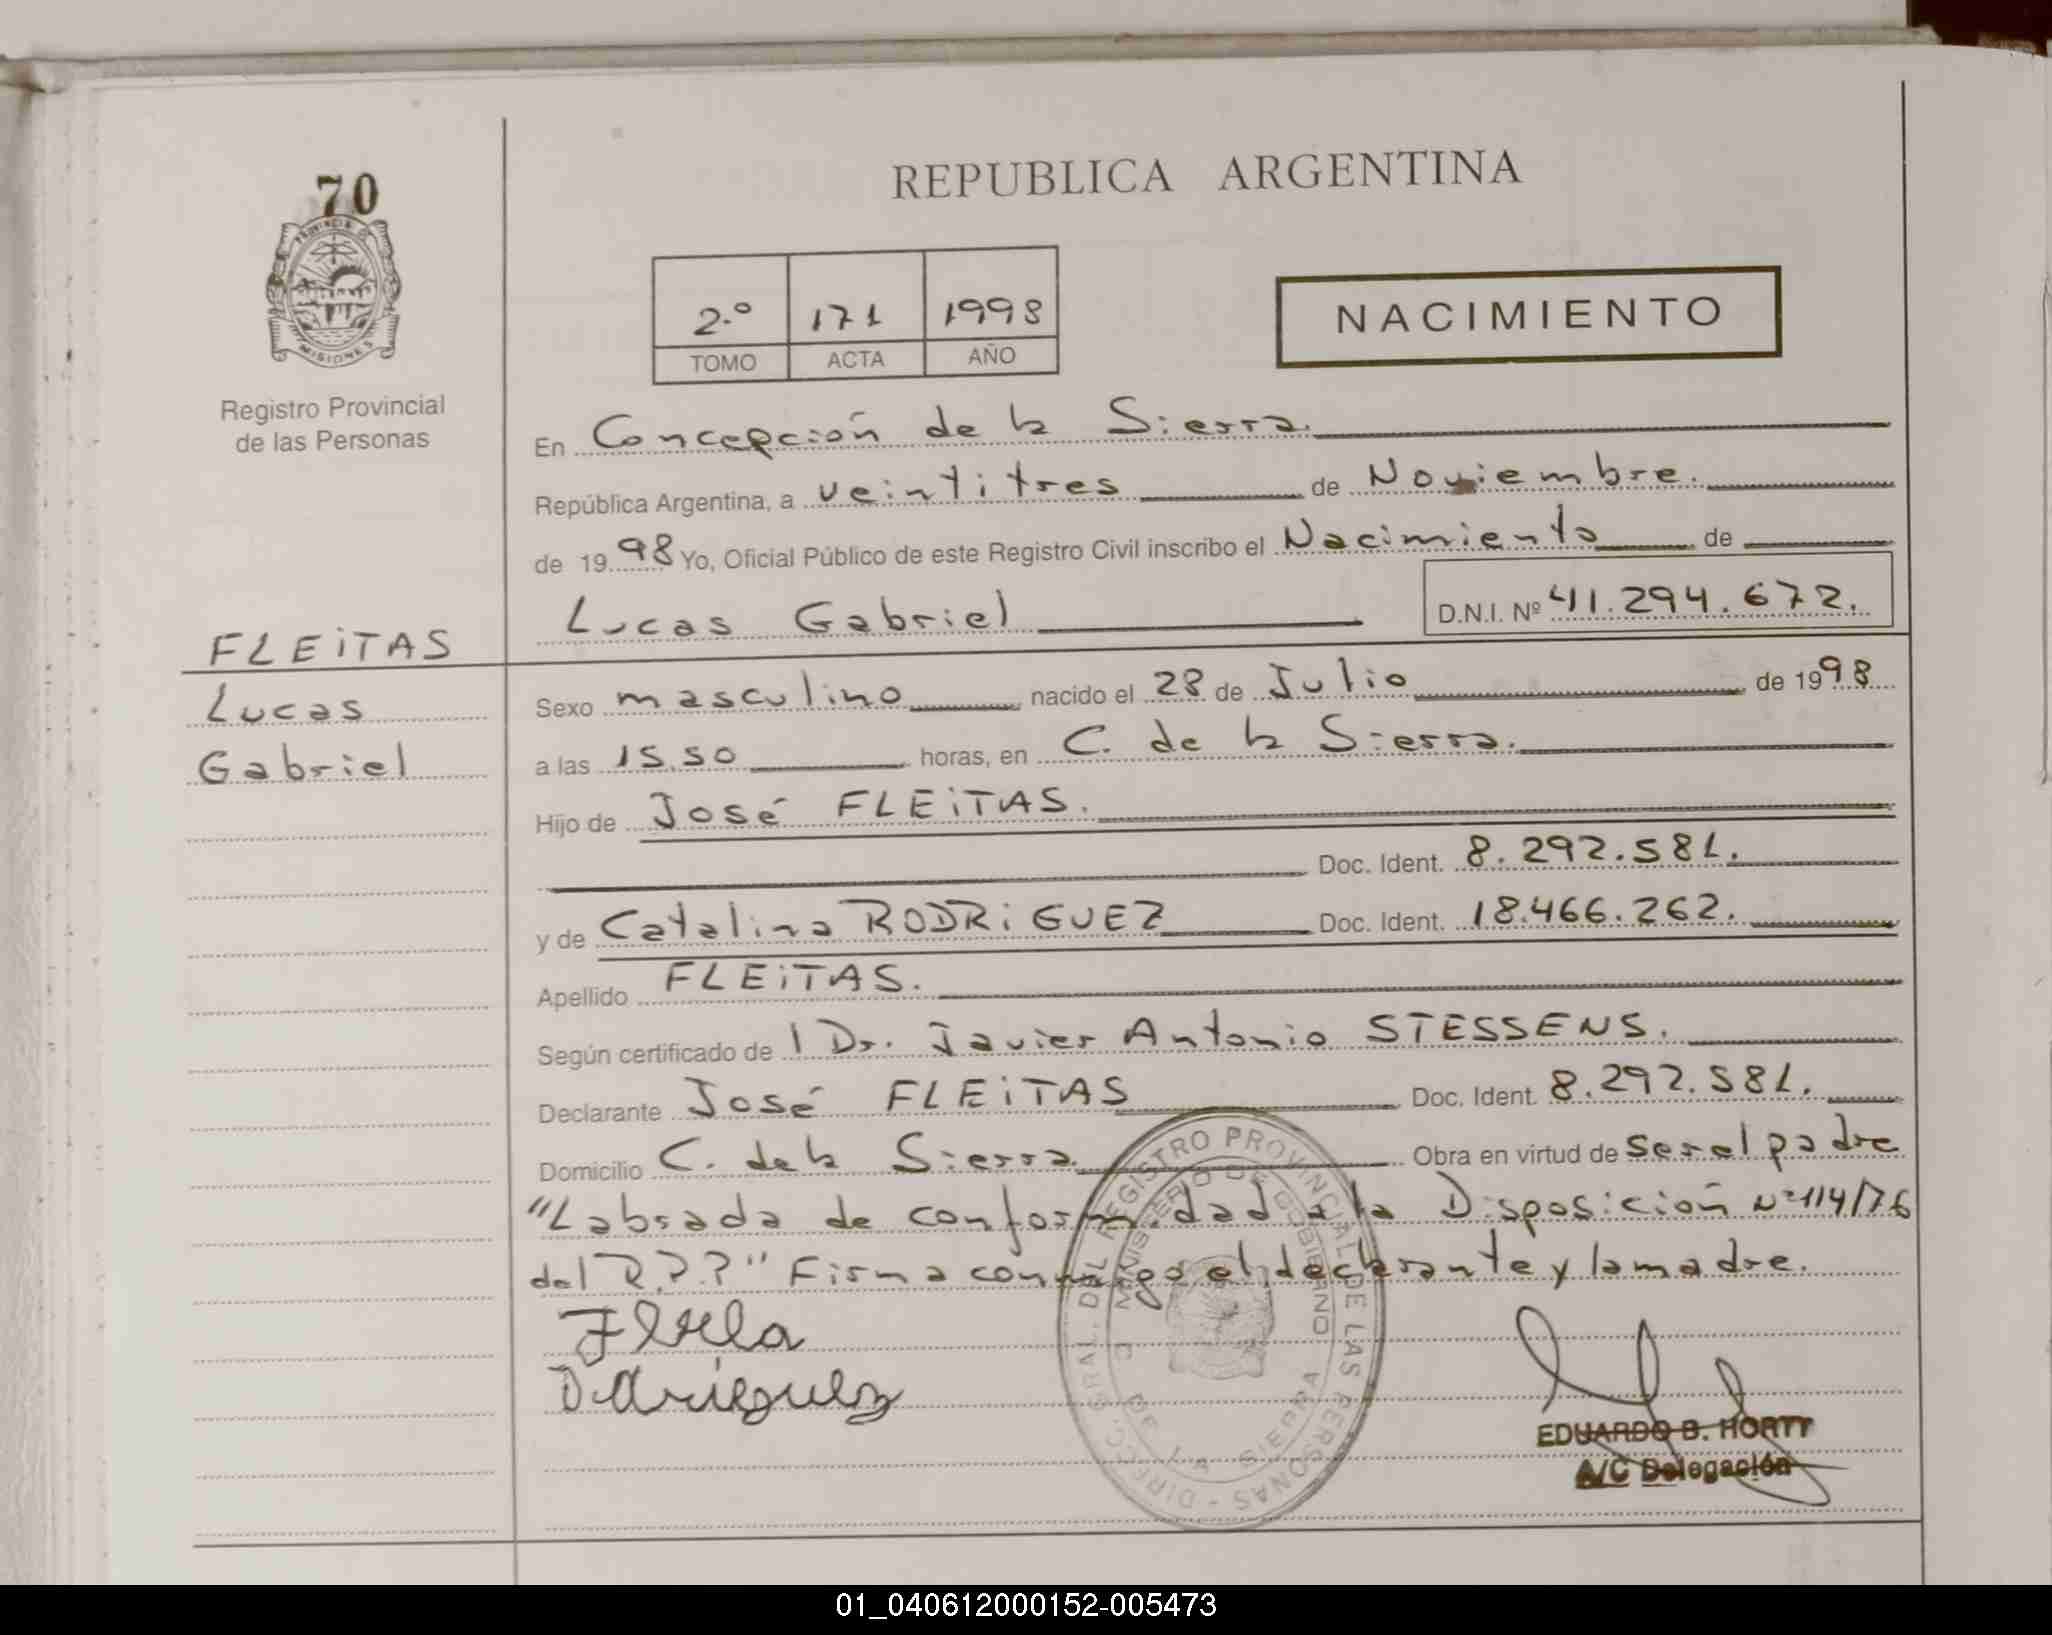 70
PROVINCIA DE
MISIONES
Registro Provincial
de las Personas
REPUBLICA ARGENTINA
2.º 171 1998
TOMO ACTA AÑO
NACIMIENTO
En Concepción de la Sierra.
República Argentina, a veintitres de Noviembre.
de 1998 Yo, Oficial Público de este Registro Civil inscribo el Nacimiento de
Lucas Gabriel D.N.I. Nº 41.294.672.
FLEiTAS
Lucas
Gabriel
Sexo masculino nacido el 28 de Julio de 1998
a las 15.50 horas, en C. de la Sierra.
Hijo de José FLEiTAS.
Doc. Ident. 8.292.581.
y de Catalina RODRiGUEZ Doc. Ident. 18.466.262.
Apellido FLEiTAS.
Según certificado del Dr. Javier Antonio STESSENS.
Declarante José FLEiTAS Doc. Ident. 8.292.581.
Domicilio C. de la Sierra. Obra en virtud de ser el padre
"Labrada de conformidad a la Disposición Nº 114/76
del R.P.P." Firma conmigo el declarante y la madre.
DIRECC. GRAL. DEL REGISTRO PROVINCIAL DE LAS PERSONAS -
MINISTERIO DE GOBIERNO
DE LA SIERRA
EDUARDO B. HORTT
A/C Delegación
01_040612000152-005473